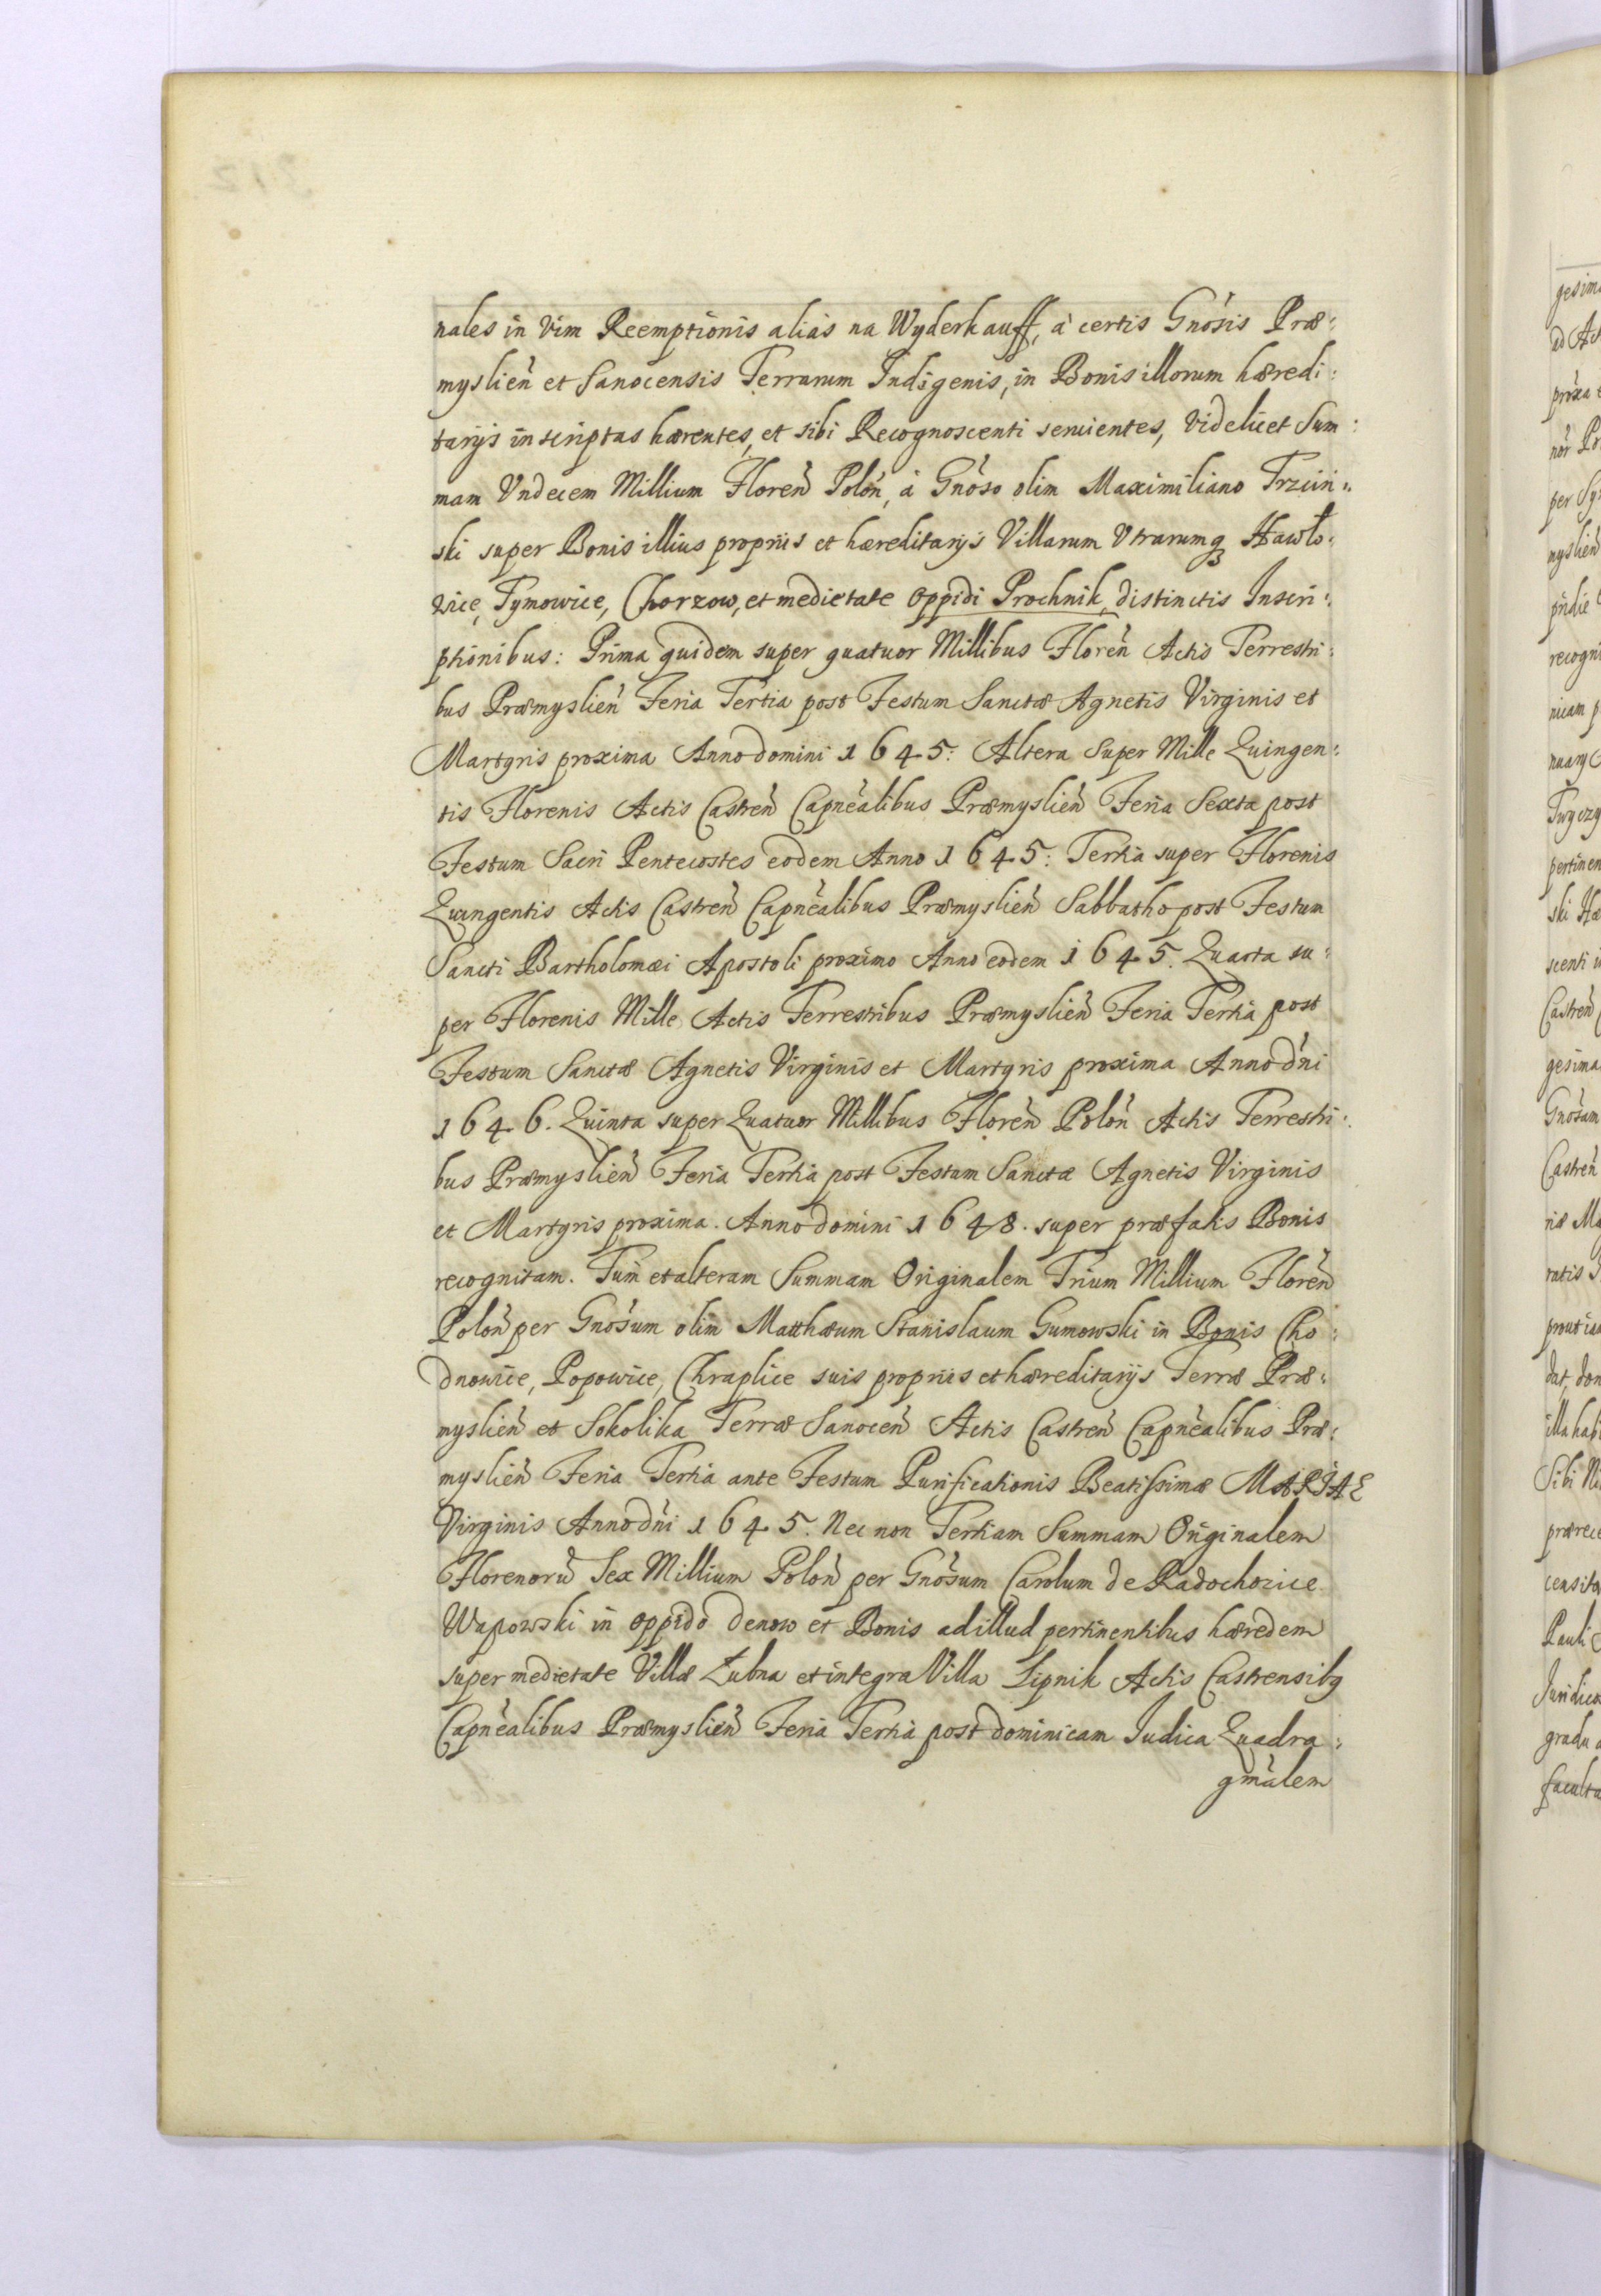 nales in vim Reemptionis aliàs na Wyderkauff, à certis Gnosis Præ:
myslien̄ et Sanocensis Terrarum Indigenis, in Bonis illorum hæredi:
tarijs inscriptas hærentes, et sibi Recognoscenti seruientes, videlicet Sum:
mam Vndecem Millium Floren̄ Polon̄, à Gnoso olim Maximiliano Trzcin:
ski super Bonis illius proprijs et hæreditarijs Villarum Vtrarumq3 Hawło:
wice, Tymowice, Chorzow, et medietate Oppidi Prochnik, distinctis Inscri:
ptionibus: Prima quidem super quatuor Millibus Floren̄ Actis Terrestri:
bus Præmyslien̄ Feria Tertia post Festum Sanctæ Agnetis Virginis et
Martyris proxima Anno domini 1645: Altera super Mille Quingen:
tis Florenis Actis Castren̄ Capnealibus Præmyslien̄ Feria Sexta post
Festum Sacri Pentecostes eodem Anno 1645: Tertia super Florenis
Quingentis Actis Castren̄ Capnealibus Præmyslien̄ Sabbatho post Festum
Sancti Bartholomæi Apostoli proximo Anno eodem 1645. Quarta su:
per Florenis Mille Actis Terrestribus Præmyslien̄ Feria Tertia post
Festum Sanctæ Agnetis Virginis et Martyris proxima Anno dn̄i
1646. Quinta super Quatuor Millibus Floren̄ Polon̄ Actis Terrestri:
bus Præmyslien̄ Feria Tertia post Festum Sanctæ Agnetis Virginis
et Martyris proxima. Anno domini 1648. super præfatis Bonis
recognitam. Tum et alteram Summam Originalem Trium Millium Floren̄
Polon̄ per Gnosum olim Matthæum Stanislaum Gumowski in Bonis Cho:
dnowice, Popowice, Chraplice suis proprijs et hæreditarijs Terræ Præ:
myslien̄ et Sokolika Terræ Sanocen̄ Actis Castren̄ Capnealibus Præ:
myslien̄ Feria Tertia ante Festum Purificationis Beatissimæ MARIAE
Virginis Anno dn̄i 1645. Nec non Tertiam Summam Originalem
Florenorū Sex Millium Polon̄ per Gnosum Carolum de Radochonice
Wapowski in oppido denow et Bonis ad illud pertinentibus hæredem
super medietate Villæ Łubna et integra Villa Lipnik Actis Castrensibq
Capnealibus Præmyslien̄ Feria Tertia post dominicam Iudica Quadra:
gmalem